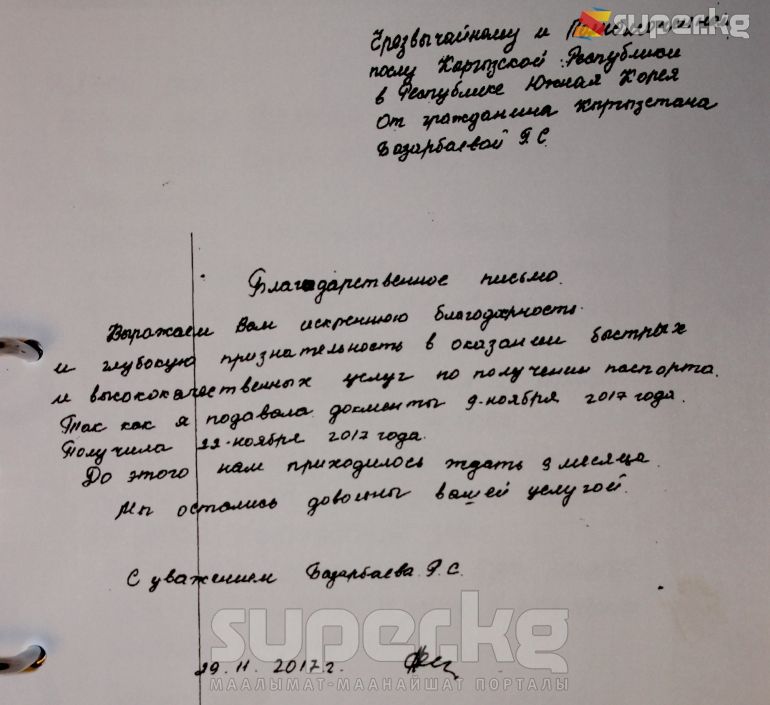 super.kg
Чрезвычайному и
послу Кыргызской Республики
в Республике Южная Корея
От гражданина Кыргызстана
Базарбаевой Г. С.
Благодарственное письмо.
Выражаем Вам искреннюю благодарность
и глубокую признательность в оказании быстрых
и высококачественных услуг по получении паспорта.
Так как я подавала документы 9-ноября 2017 года.
Получила 22-ноября 2017 года.
До этого нам приходилось ждать 3 месяца.
Мы остались довольны вашей услугой.
С уважением Базарбаева Г. С.
super.kg
29. 11. 2017 г.
МААЛЫМАТ-МААНАЙШАТ ПОРТАЛЫ